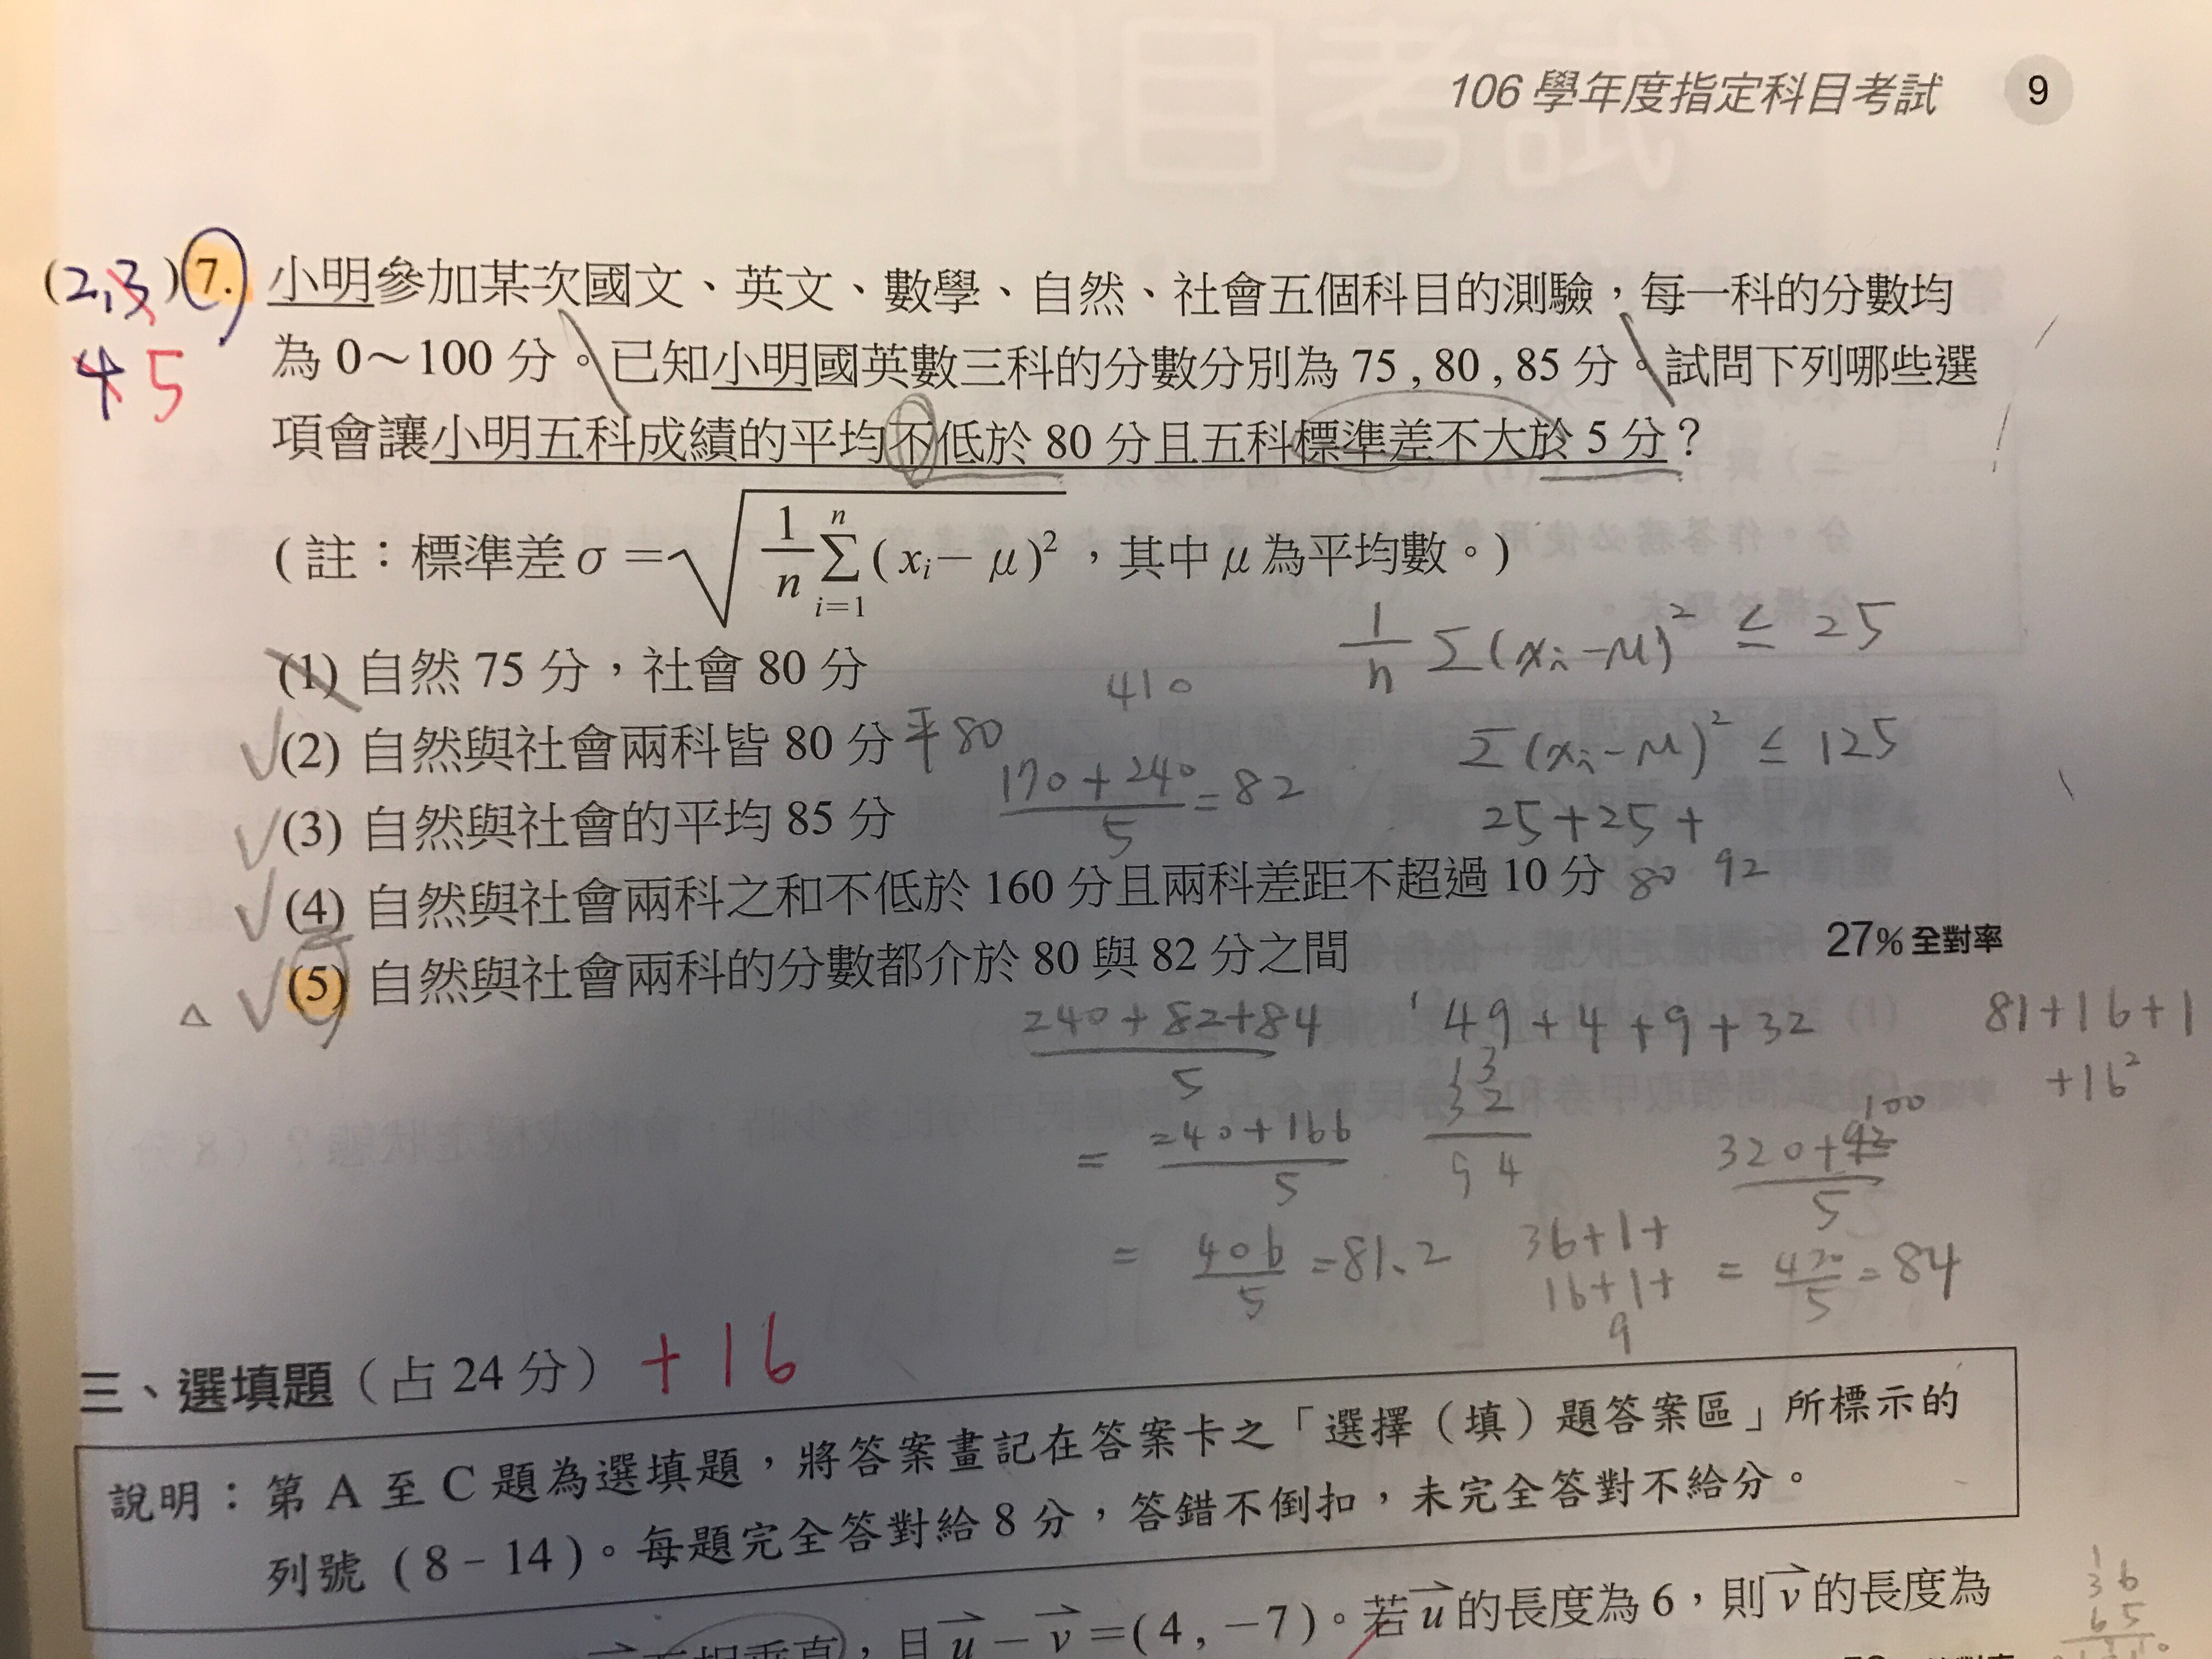 106 學年度指定科目考試 9
(2,3
4 5
) 7. 小明參加某次國文、英文、數學、自然、社會五個科目的測驗，每一科的分數均
為 0～100 分。已知小明國英數三科的分數分別為 75 , 80 , 85 分。試問下列哪些選
項會讓小明五科成績的平均不低於 80 分且五科標準差不大於 5 分？
(註：標準差 σ = √(1/n Σ_{i=1}^{n} (x_i − μ)²)，其中 μ 為平均數。)
1/n Σ(x_i − μ)² ≤ 25
(1) 自然 75 分，社會 80 分
410
(2) 自然與社會兩科皆 80 分 平 80
Σ(x_i − μ)² ≤ 125
(170 + 240)/5 = 82
(3) 自然與社會的平均 85 分
25+25+
(4) 自然與社會兩科之和不低於 160 分且兩科差距不超過 10 分 80 92
27% 全對率
△ (5) 自然與社會兩科的分數都介於 80 與 82 分之間
(240+82+84)/5
49+4+9+32
81+16+1
+16²
= (240+166)/5
13
32
94
100
320+92
5
= 406/5 = 81.2
36+1+
16+1+
9
= 420/5 = 84
三、選填題（占 24 分） +16
說明：第 A 至 C 題為選填題，將答案畫記在答案卡之「選擇（填）題答案區」所標示的
列號 (8 – 14)。每題完全答對給 8 分，答錯不倒扣，未完全答對不給分。
且 u − v = (4 , −7)。若 u 的長度為 6，則 v 的長度為
36
65